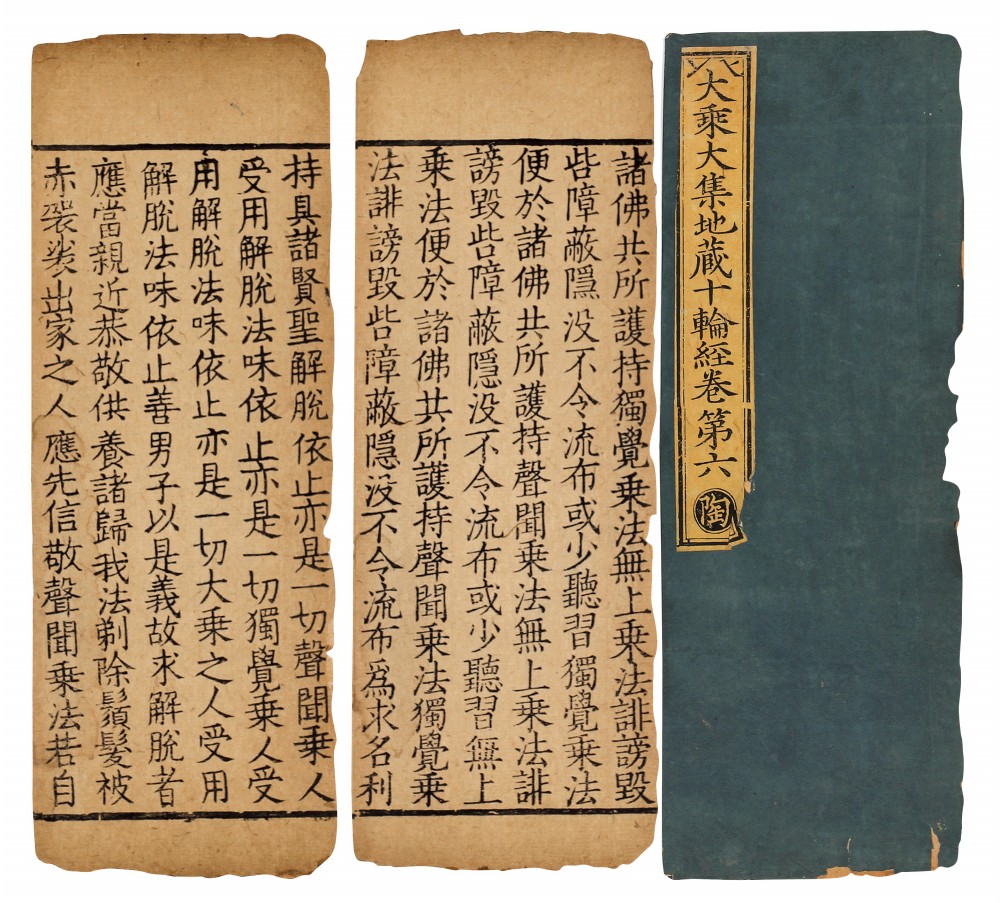 大乘大集地藏十輪經卷第六
陶
諸佛共所護持獨覺乘法無上乘法誹謗毀
呰障蔽隱没不令流布或少聽習獨覺乘法
便於諸佛共所護持聲聞乘法無上乘法誹
謗毀呰障蔽隱没不令流布或少聽習無上
乘法便於諸佛共所護持聲聞乘法獨覺乘
法誹謗毀呰障蔽隱没不令流布爲求名利
持具諸賢聖解脫依止亦是一切聲聞乘人
受用解脫法味依止亦是一切獨覺乘人受
用解脫法味依止亦是一切大乘之人受用
解脫法味依止善男子以是義故求解脫者
應當親近恭敬供養諸歸我法剃除鬚髮被
赤袈裟出家之人應先信敬聲聞乘法若自